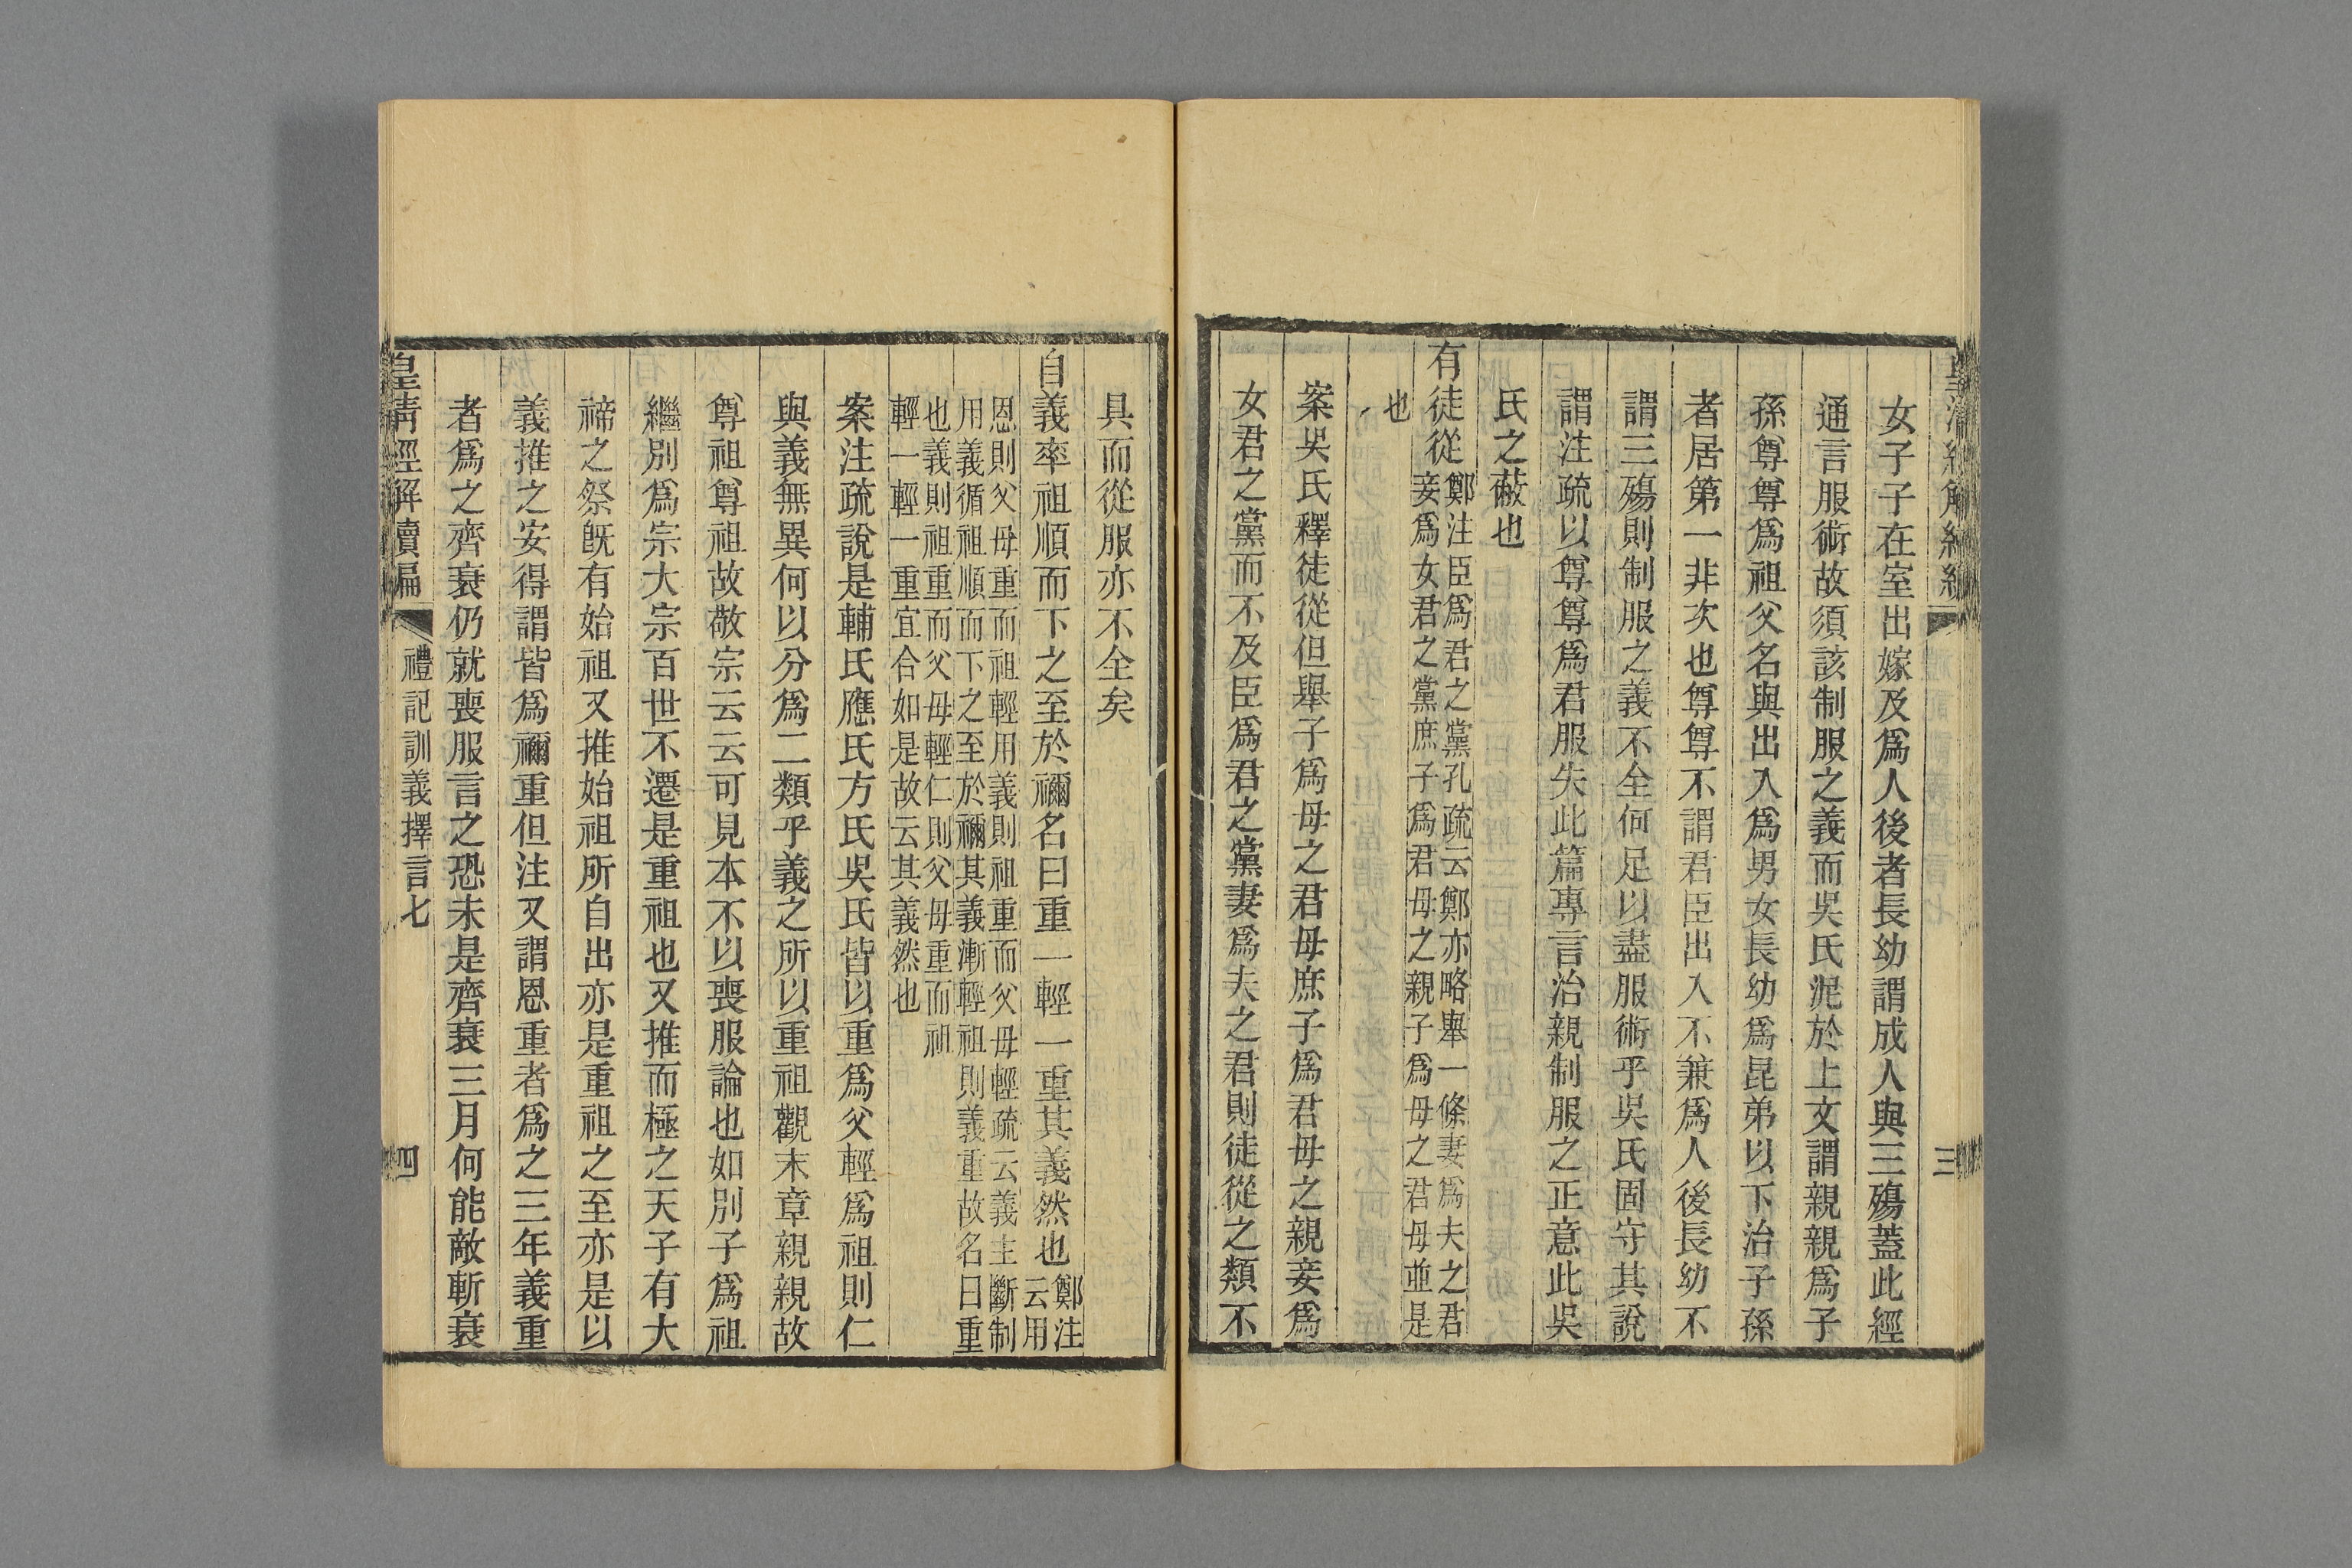 女子子在室出嫁及爲人後者長幼謂成人與三殤蓋此經
通言服術故須該制服之義而吳氏泥於上文謂親親爲子
孫尊尊爲祖父名與出入爲男女長幼爲昆弟以下治子孫
者居第一非次也尊尊不謂君臣出入不兼爲人後長幼不
謂三殤則制服之義不全何足以盡服術乎吳氏固守其說
謂注疏以尊尊爲君服失此篇專言治親制服之正意此吳
氏之蔽也
有徒從鄭注臣爲君之黨孔疏云鄭亦略舉一條妻爲夫之君
妾爲女君之黨庶子爲君母之親子爲母之君母並是
也
案吳氏釋徒從但舉子爲母之君母庶子爲君母之親妾爲
女君之黨而不及臣爲君之黨妻爲夫之君則徒從之類不
三
具而從服亦不全矣
自義率祖順而下之至於禰名曰重一輕一重其義然也鄭注
云用
恩則父母重而祖輕用義則祖重而父母輕疏云義主斷制
用義循祖順而下之至於禰其義漸輕祖則義重故名曰重
也義則祖重而父母輕仁則父母重而祖
輕一輕一重宜合如是故云其義然也
案注疏說是輔氏應氏方氏吳氏皆以重爲父輕爲祖則仁
與義無異何以分爲二類乎義之所以重祖觀末章親親故
尊祖尊祖故敬宗云云可見本不以喪服論也如別子爲祖
繼別爲宗大宗百世不遷是重祖也又推而極之天子有大
禘之祭旣有始祖又推始祖所自出亦是重祖之至亦是以
義推之安得謂皆爲禰重但注又謂恩重者爲之三年義重
者爲之齊衰仍就喪服言之恐未是齊衰三月何能敵斬衰
皇淸經解續扁
禮記訓義擇言七
四